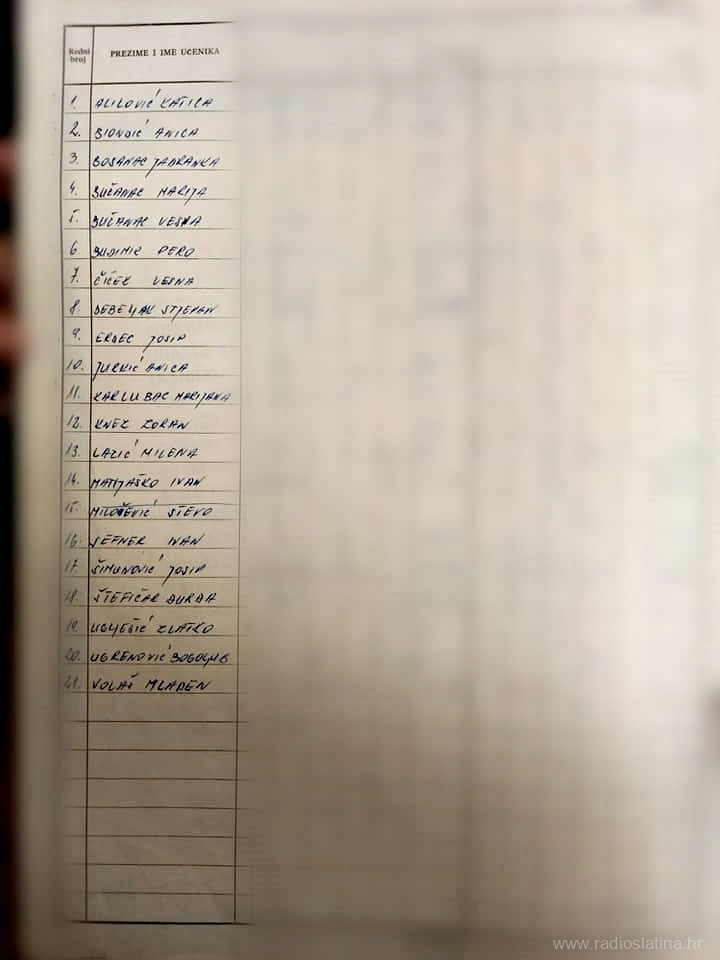 Redni broj PREZIME I IME UČENIKA
1. ALILOVIĆ KATICA
2. BIONDIĆ ANICA
3. BOSANAC JADRANKA
4. BUČANAC MARIJA
5. BUČANAC VESNA
6 BUDIMIR PERO
7. ČIČEK VESNA
8. DEBELJAK STJEPAN
9. ERDEC JOSIP
10. JURKIĆ ANICA
11. KARLUBAC MARIJANA
12. KNEZ ZORAN
13. LAZIĆ MILENA
14. MATIJAŠKO IVAN
15. MILOŠEVIĆ STEVO
16. SEFNER IVAN
17. ŠIMUNOVIĆ JOSIP
18. ŠTEFIČAR ĐURĐA
19. UGLJEŠIĆ ZLATKO
20. UGRENOVIĆ BOGOLJUB
21. VOLAŠ MLADEN
www.radioslatina.hr